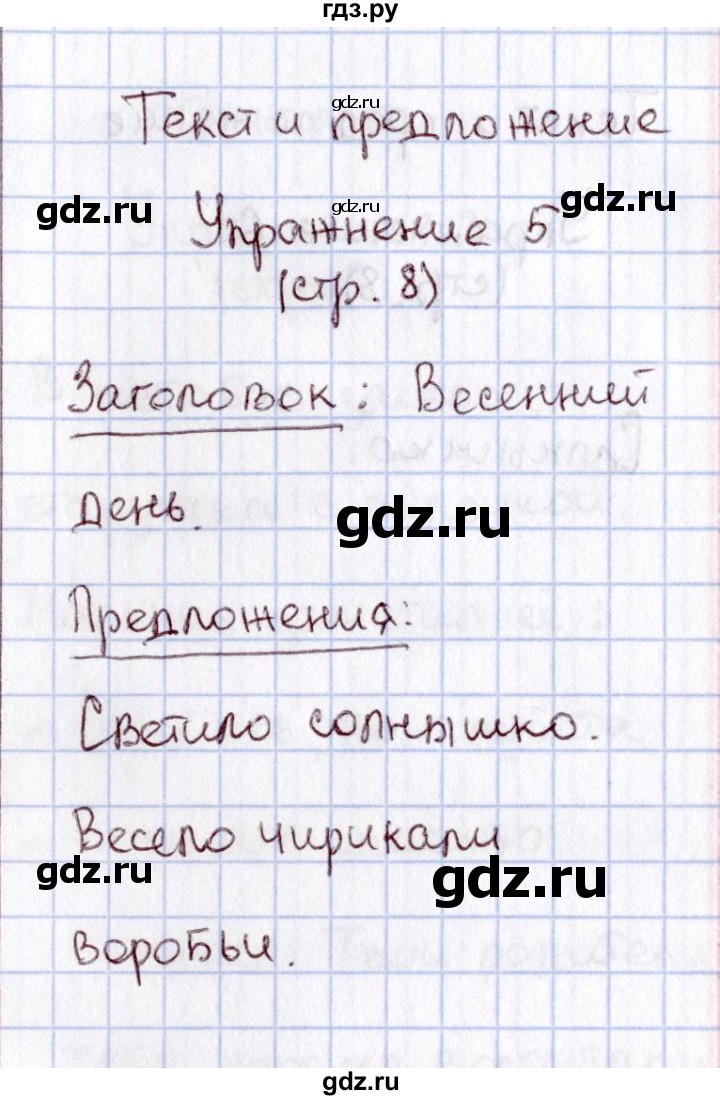 гдз.ру
gdz.ru
Текст и предложение
gdz.ru
gdz.ru
gdz.ru
Упражнение 5
(стр. 8)
Заголовок: Весенний
день.
gdz.ru
Предложения:
Светило солнышко.
Весело чирикали
gdz.ru
gdz.ru
воробьи.
gdz.ru